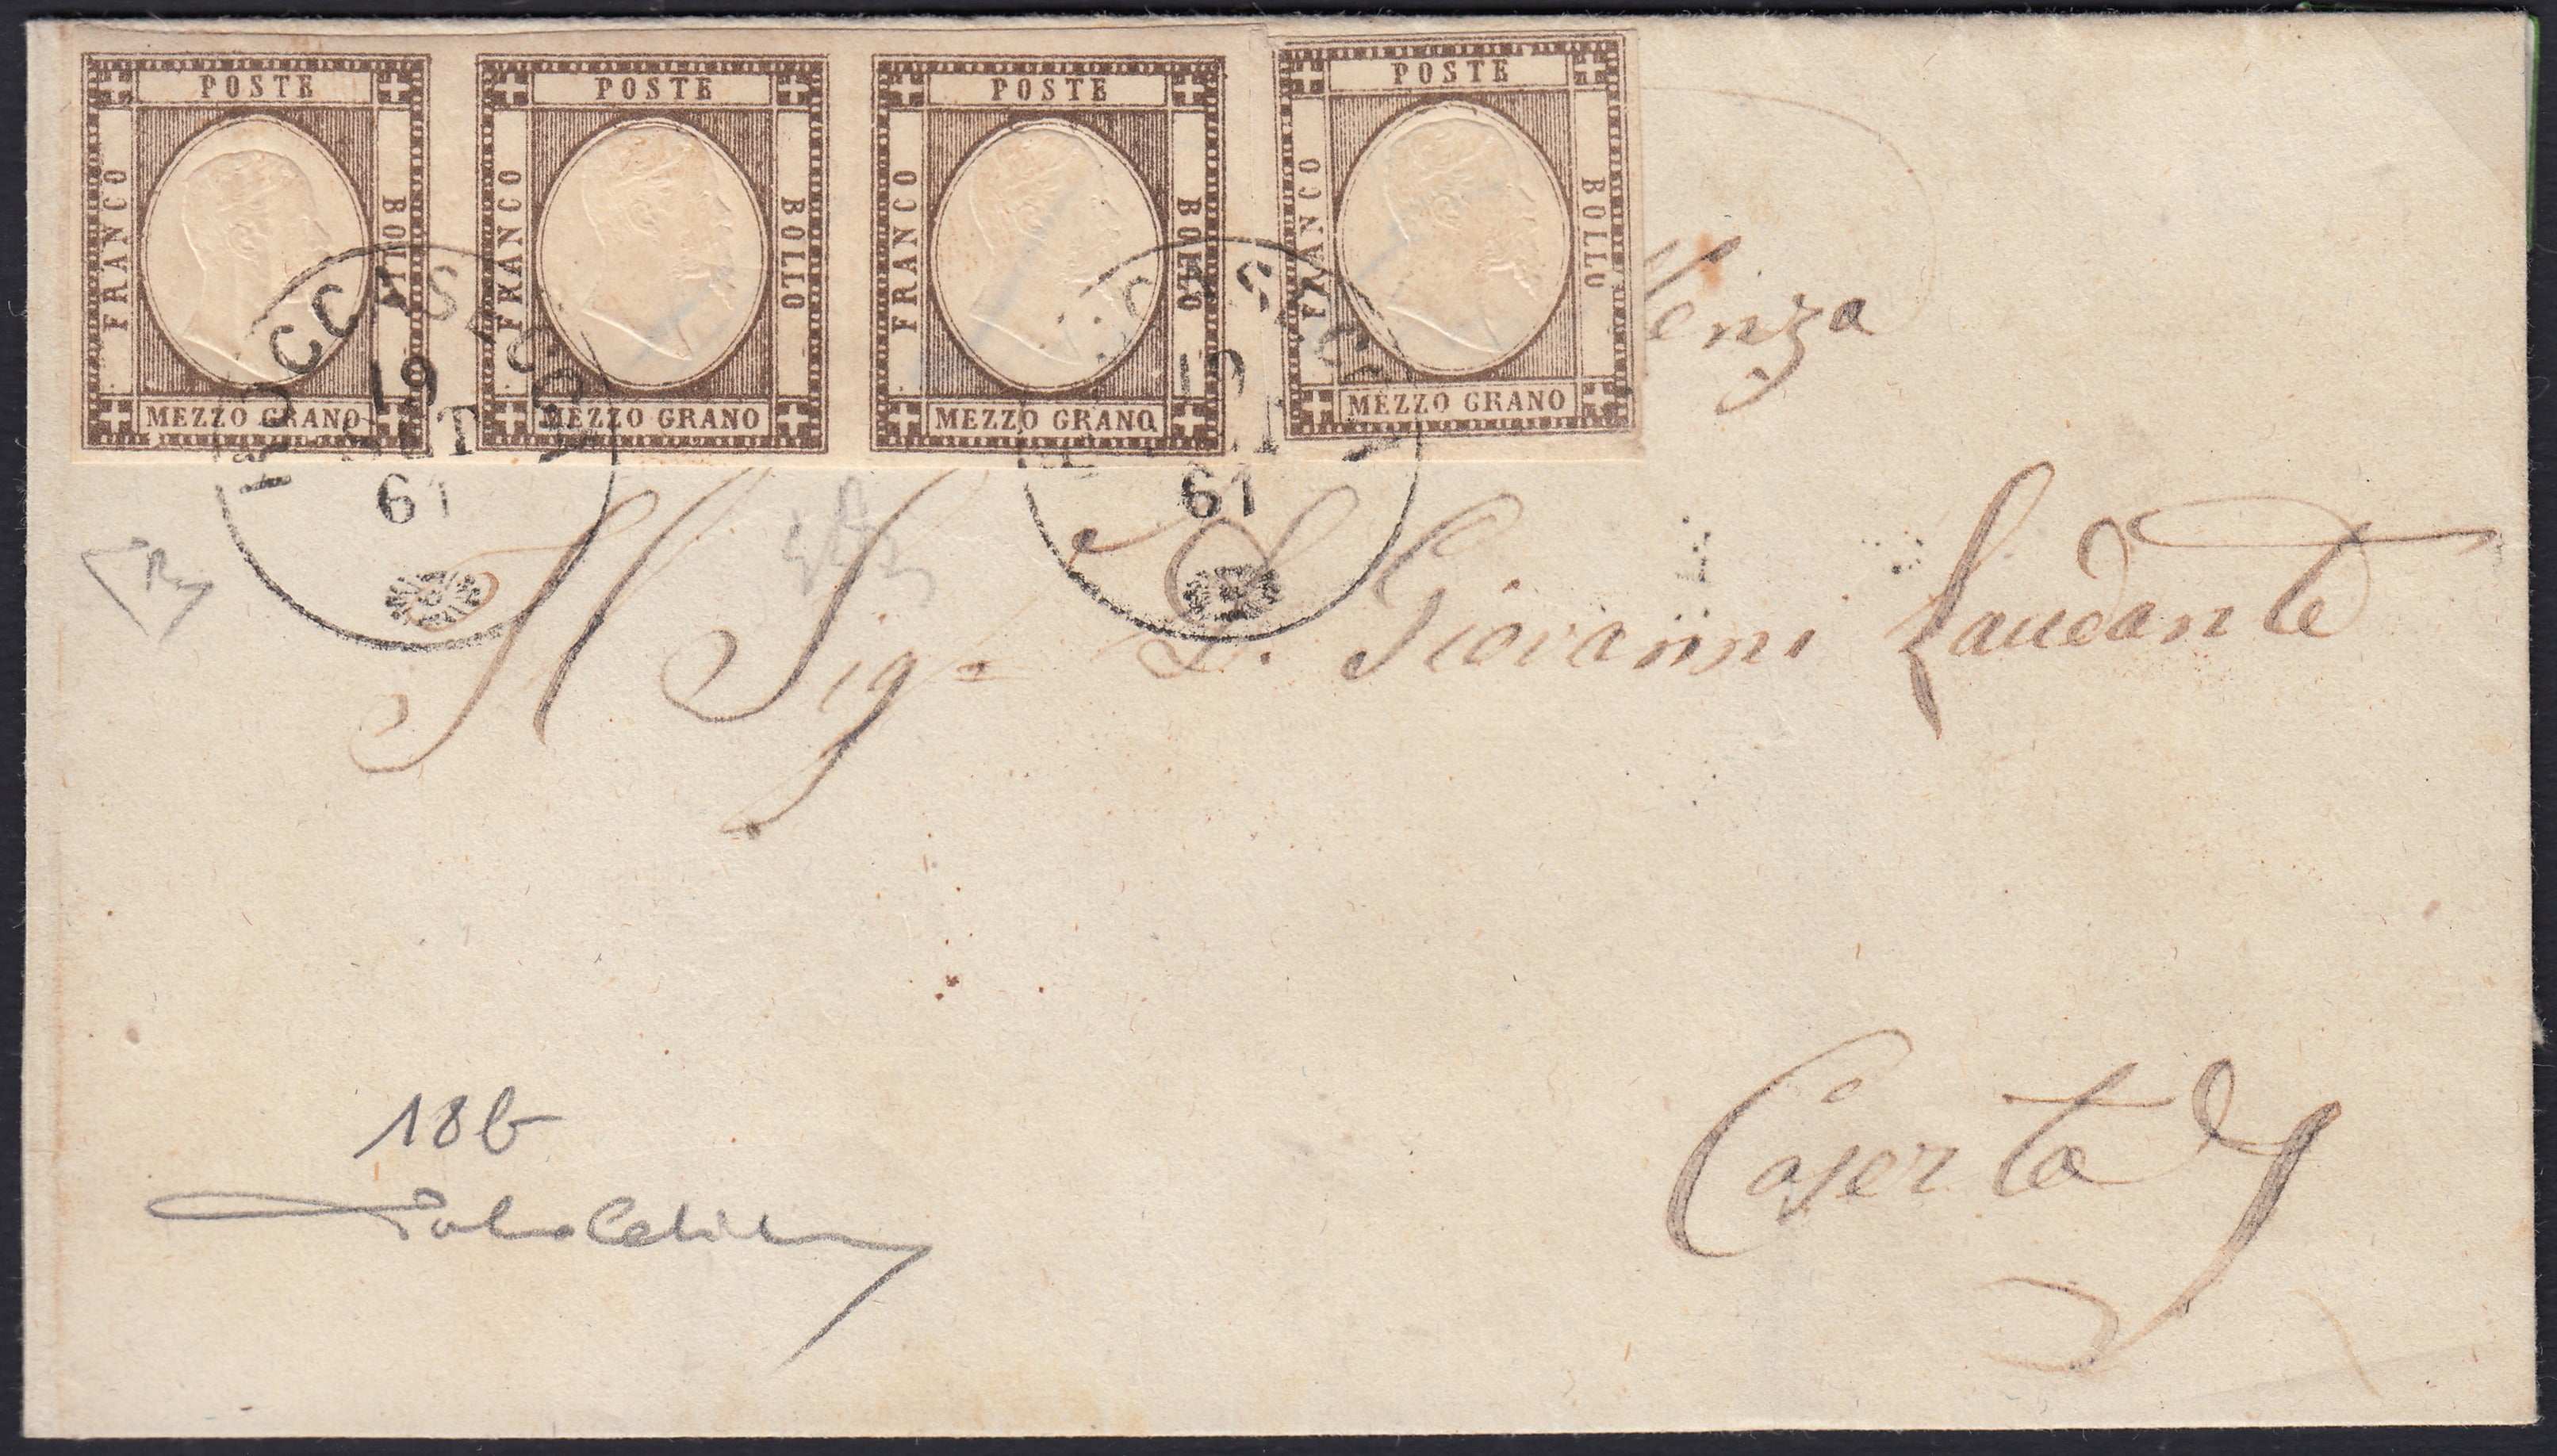 POSTE
FRANCO
BOLLO
MEZZO GRANO
POSTE
FRANCO
BOLLO
MEZZO GRANO
POSTE
FRANCO
BOLLO
MEZZO GRANO
POSTE
FRANCO
BOLLO
MEZZO GRANO
ROCCASECCA
19
SET
61
ROCCASECCA
19
SET
61
enza
Il Sig.r D. Giovanni Laudante
Caserta
18b